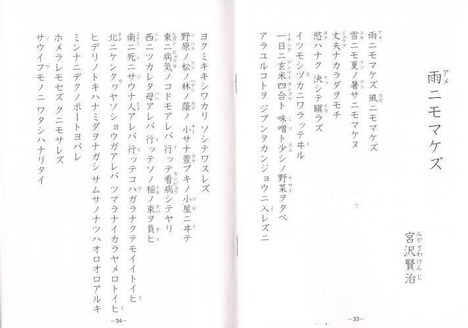 雨ニモマケズ
宮沢賢治
雨ニモマケズ 風ニモマケズ
雪ニモ夏ノ暑サニモマケヌ
丈夫ナカラダヲモチ
慾ハナク 決シテ瞋ラズ
イツモシヅカニワラッテヰル
一日ニ玄米四合ト 味噌ト少シノ野菜ヲタベ
アラユルコトヲジブンヲカンジョウニ入レズニ
-33-
ヨクミキキシワカリ ソシテワスレズ
野原ノ松ノ林ノ蔭ノ 小サナ萱ブキノ小屋ニヰテ
東ニ病気ノコドモアレバ 行ッテ看病シテヤリ
西ニツカレタ母アレバ 行ッテソノ稲ノ束ヲ負ヒ
南ニ死ニサウナ人アレバ 行ッテコハガラナクテモイイトイヒ
北ニケンクヮヤソショウガアレバ ツマラナイカラヤメロトイヒ
ヒデリノトキハナミダヲナガシ サムサノナツハオロオロアルキ
ミンナニデクノボートヨバレ
ホメラレモセズ クニモサレズ
サウイフモノニ ワタシハナリタイ
-34-